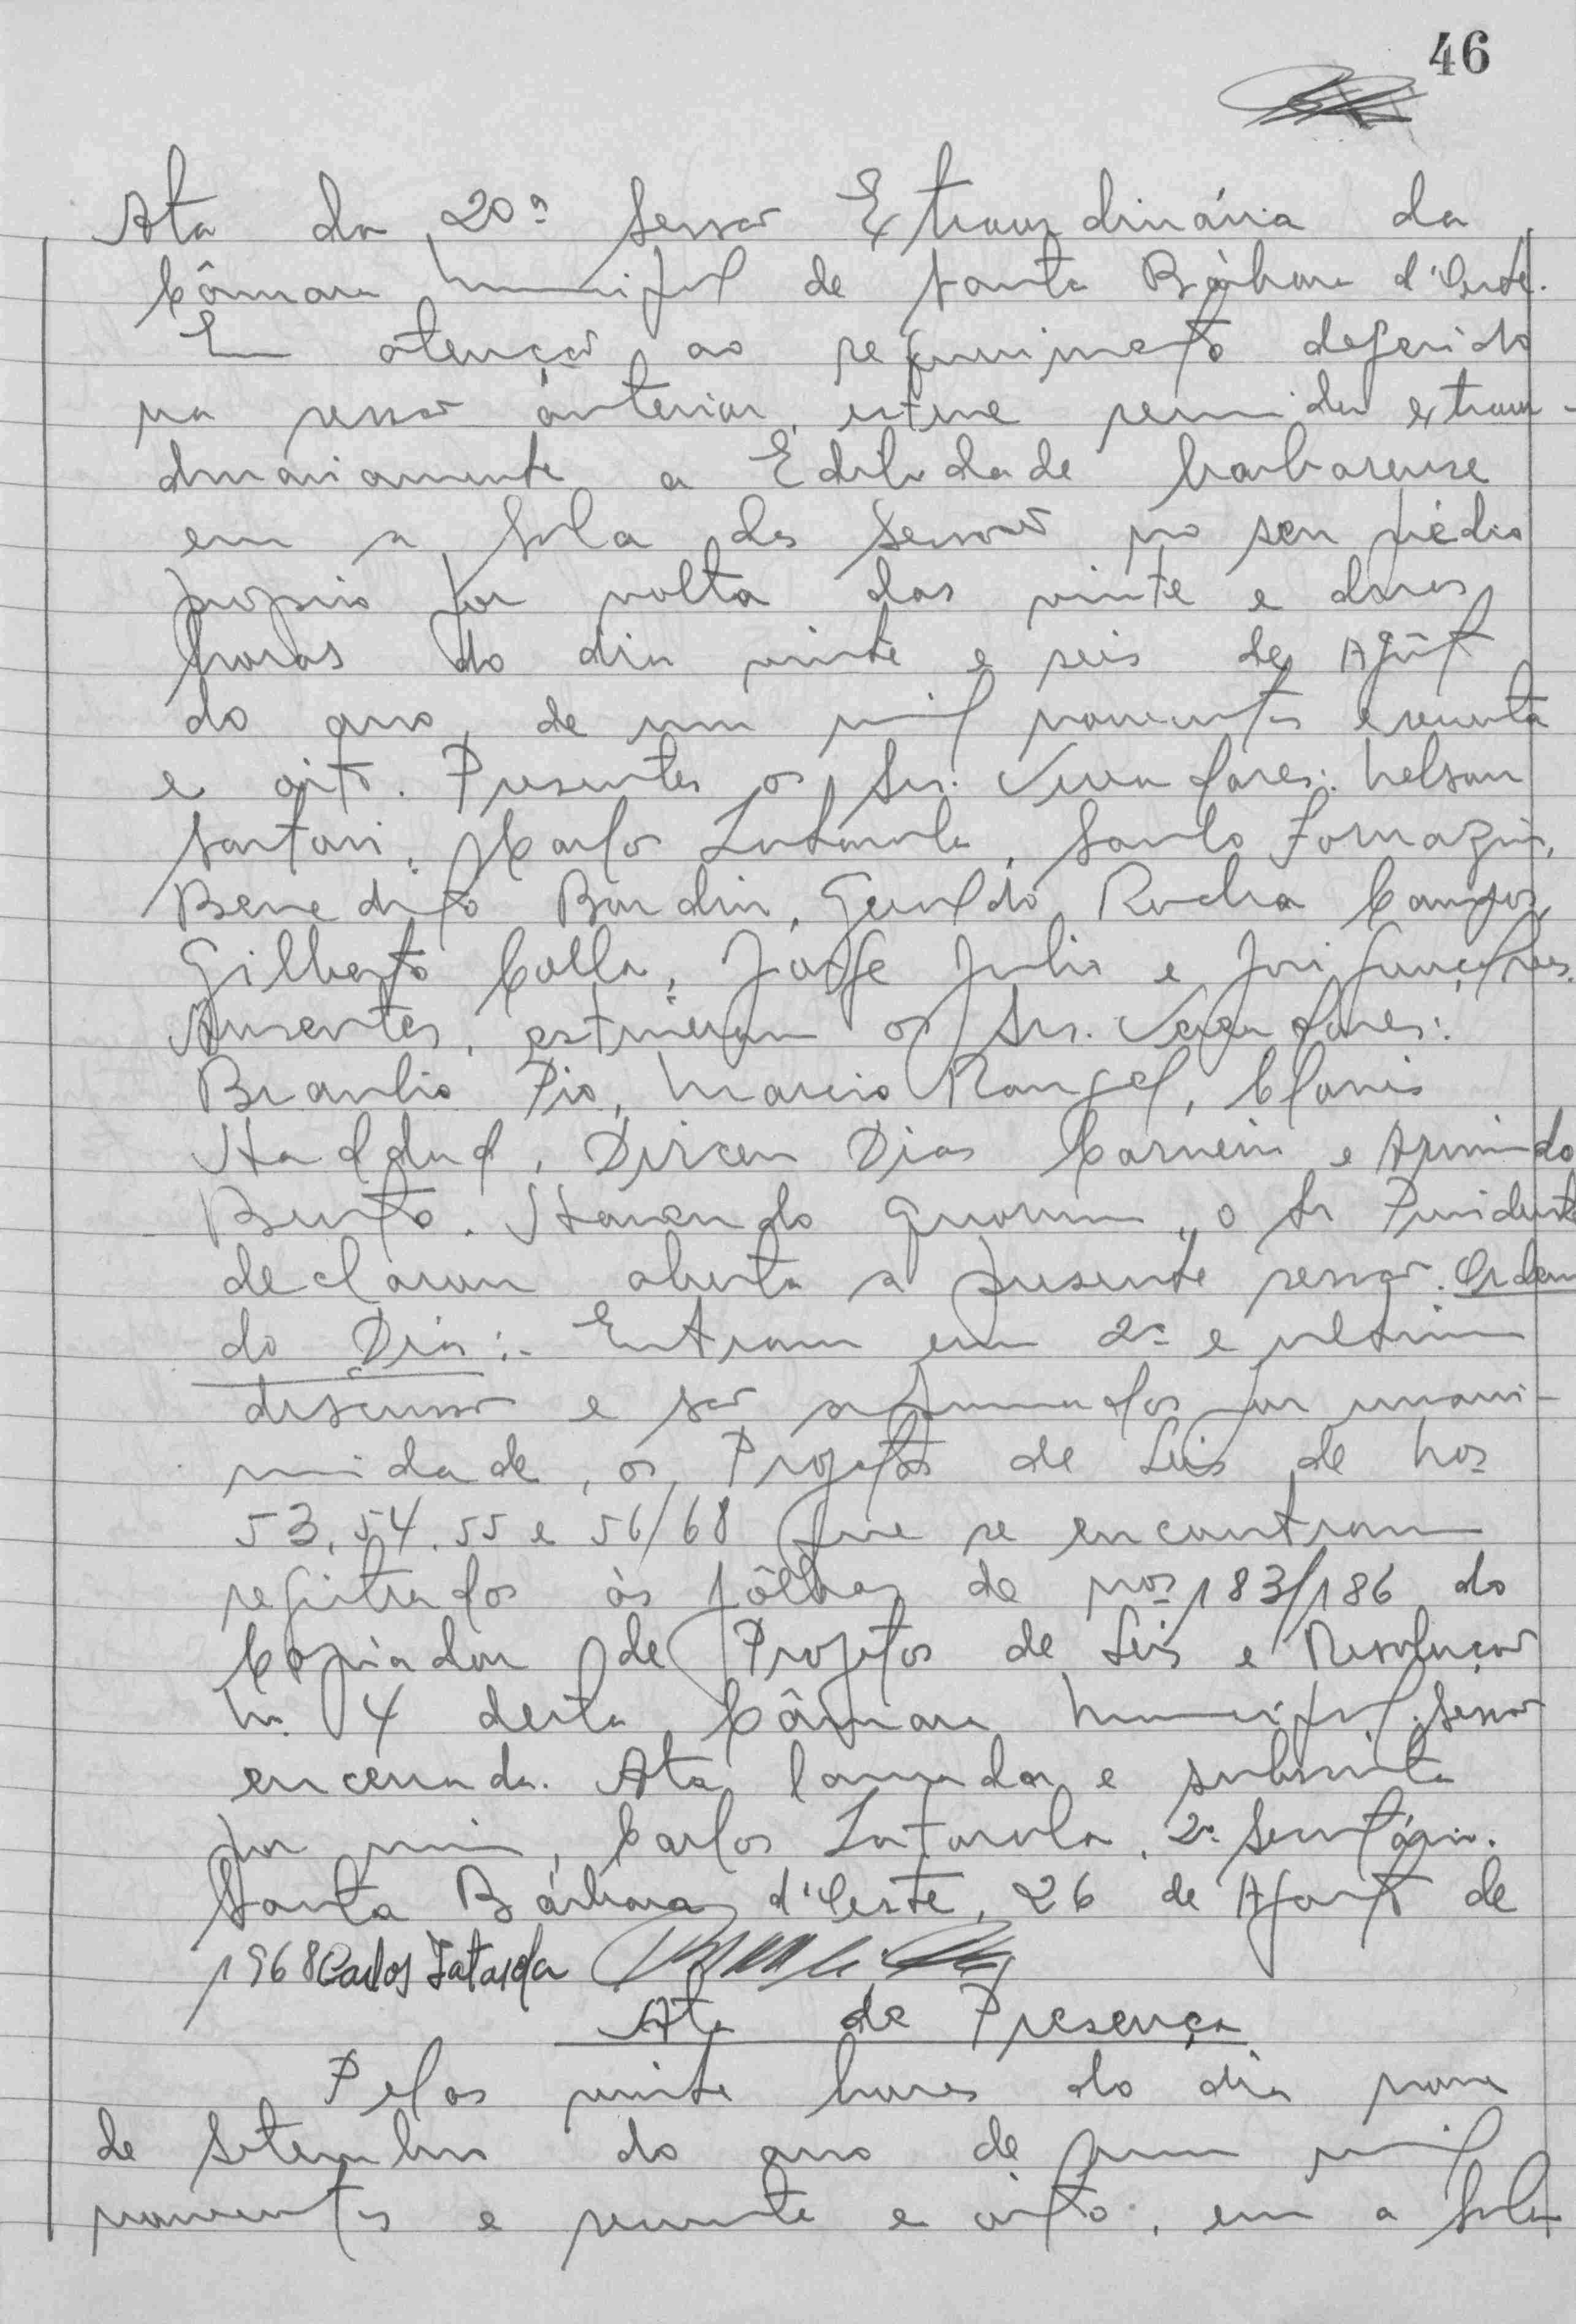 46
Ata da 20ª Sessão Extraordinária da
Câmara Municipal de Santa Bárbara d'Oeste.
Em atenção ao requerimento deferido
na sessão anterior, esteve reunida extraor-
dinariamente a Edilidade barbarense
em a Sala das Sessões no seu prédio
próprio por volta das vinte e duas
horas do dia vinte e seis de Agôsto
do ano de um mil novecentos e sessenta
e oito. Presentes os Srs. Vereadores: Nelson
Sartori, Carlos Latarola, Santo Fornazin,
Benedito Bardin, Geraldo Rocha Campos,
Gilberto Colla, Jorge Julio e José Gonçalves.
Ausentes, estiveram os Srs. Vereadores:
Braulio Pio, Marcio Rangel, Clovis
Haddad, Dirceu Dias Carneiro e Armindo
Bento. Havendo quorum, o Sr Presidente
declarou aberta a presente sessão. Ordem
do Dia:- Entram em 2ª e ultima
discussão e são aprovados por unani-
midade, os Projetos de Leis de Nos
53, 54, 55 e 56/68 que se encontram
registrados às fôlhas de nos 183/186 do
Copiador de Projetos de Leis e Resolução
Nº 4 desta Câmara Municipal. Sessão
encerrada. Ata lavrada e subscrita
por mim, Carlos Latarola, 2º Secretário.
Santa Bárbara d'Oeste, 26 de Agosto de
1968 Carlos Latarola
Ata de Presença
Pelas vinte horas do dia nove
de Setembro do ano de um mil
novecentos e sessenta e oito, em a Sala